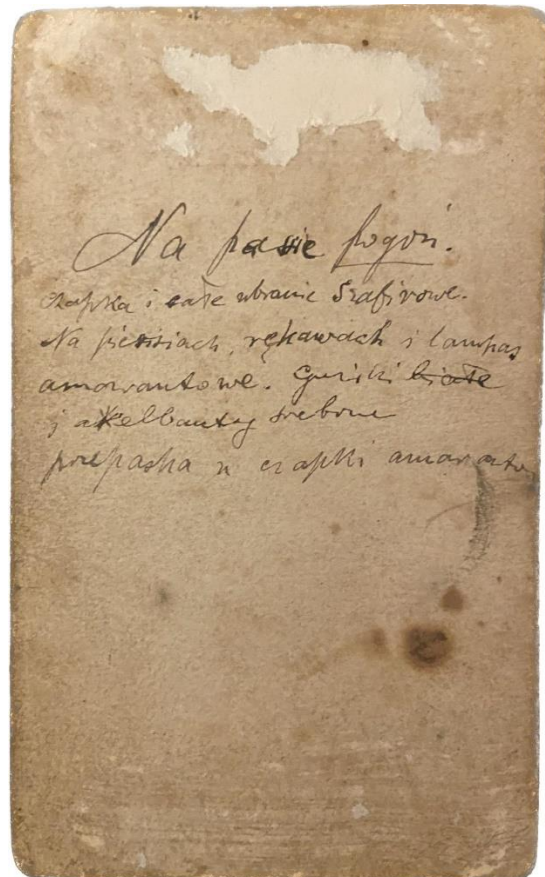 Na pasie pogoń.
Czapka i całe ubranie Szafirowe.
Na piersiach, rękawach i lampas
amarantowe. Guziki białe
i akselbanty srebrne
przepaska u czapki amarantow